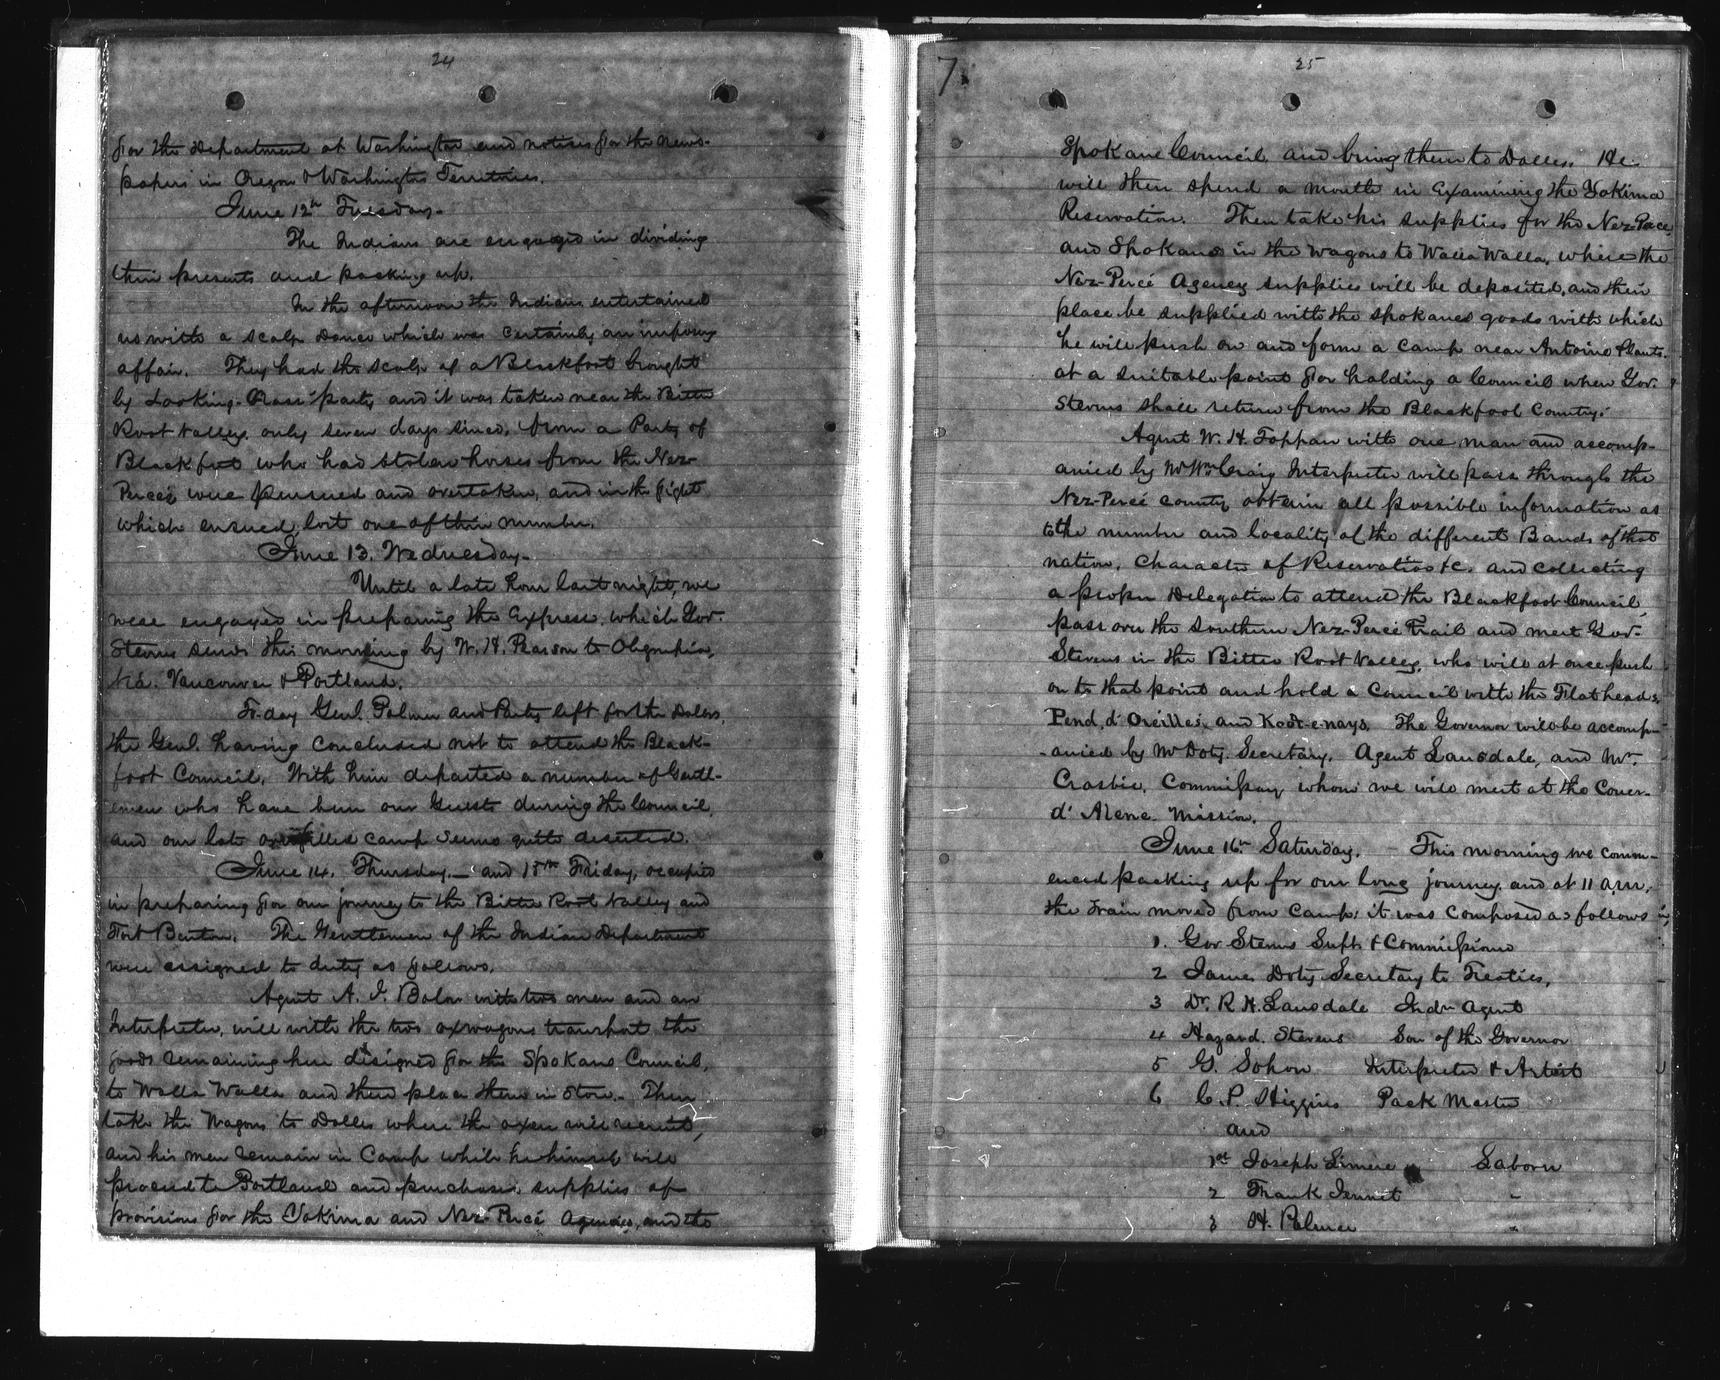 24
for the Department at Washington and notices for the news-
papers in Oregon & Washington Territories.
June 12th Tuesday.
The Indians are engaged in dividing
their presents and packing up.
In the afternoon the Indians entertained
us with a scalp dance which was certainly an imposing
affair. They had the scalp of a Blackfoot brought
by Looking-Glass' party and it was taken near the Bitter
Root Valley, only seven days since, from a Party of
Blackfeet who had stolen horses from the Nez-
Percés were pursued and overtaken, and in the fight
which ensued lost one of their number.
June 13. Wednesday.
Until a late hour last night, we
were engaged in preparing the Express which Gov.
Stevens sends this morning by W. H. Pearson to Olympia,
via. Vancouver & Portland.
To-day Genl. Palmer and Party left for the Dalles,
the Genl. having concluded not to attend the Black-
foot Council. With him departed a number of Gentl-
emen who have been our Guests during the Council,
and our late camp seems quite deserted.
June 14. Thursday.— and 15th Friday, occupied
in preparing for our journey to the Bitter Root Valley and
Fort Benton. The Gentlemen of the Indian Department
were assigned to duty as follows.
Agent A. J. Bolon with two men and an
Interpreter, will with the two ox wagons transport the
goods remaining here designed for the Spokane Council,
to Walla Walla and there place them in Store. Then
take the Wagons to Dalles where the oxen will recruit,
and his men remain in Camp while he himself will
proceed to Portland and purchase supplies of
provisions for the Yakima and Nez-Percé Agencies, and the
7
25
Spokane Council and bring them to Dalles. He
will then spend a month in examining the Yakima
Reservation. Then take his supplies for the Nez-Perce
and Spokanes in the wagons to Walla Walla, where the
Nez-Percé Agency supplies will be deposited, and their
place be supplied with the Spokanes goods with which
he will push on and form a camp near Antoine Plants.
at a suitable point for holding a Council when Gov.
Stevens shall return from the Blackfoot Country.
Agent W. H. Tappan with one man and accomp-
anied by Mr Wm Craig Interpreter will pass through the
Nez-Percé country obtain all possible information as
to the number and locality of the different Bands of that
nation, Character of Reservation &c. and collecting
a proper Delegation to attend the Blackfoot Council
pass over the southern Nez-Percé Trail and meet Gov.
Stevens in the Bitter Root Valley, who will at once push
on to that point and hold a Council with the Flatheads,
Pend, d' Oreilles, and Koot-e-nays. The Governor will be accomp-
-anied by Mr Doty, Secretary, Agent Lansdale, and Mr.
Crosbie, Commissary whom we will meet at the Coeur-
d' Alene Mission.
June 16th Saturday. — This morning we comm-
enced packing up for our long journey and at 11 a.m.
the train moved from Camp: it was composed as follows
1. Gov Stevens Supt. & Commissioner
2 James Doty Secretary to Treaties,
3 Dr. R. H. Lansdale Indn Agent
4 Hazard. Stevens Son of the Governor
5 G. Sohon Interpreter & Artist
6 C. P. Higgins Pack Master
and
1st Joseph Simere Laborer
2 Frank Jennet "
3 H. Palmer "